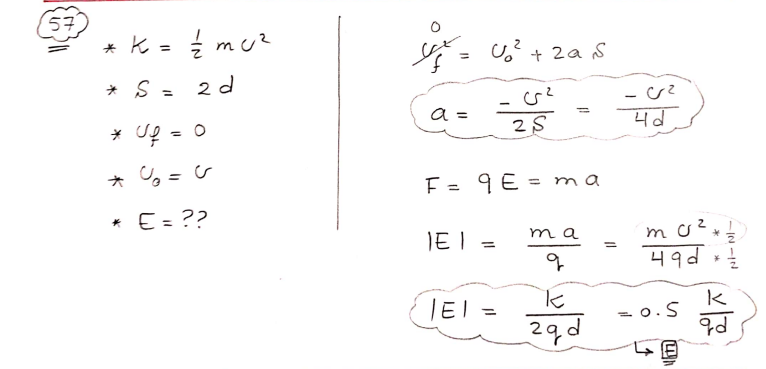 57
* K = 1/2 m v²
* S = 2d
* v_f = 0
* v₀ = v
* E = ??
0
v_f² = v₀² + 2 a S
a = -v² / 2S = -v² / 4d
F = qE = ma
|E| = ma / q = m v² * 1/2 / 4qd * 1/2
|E| = k / 2qd = 0.5 k / qd
↳ E